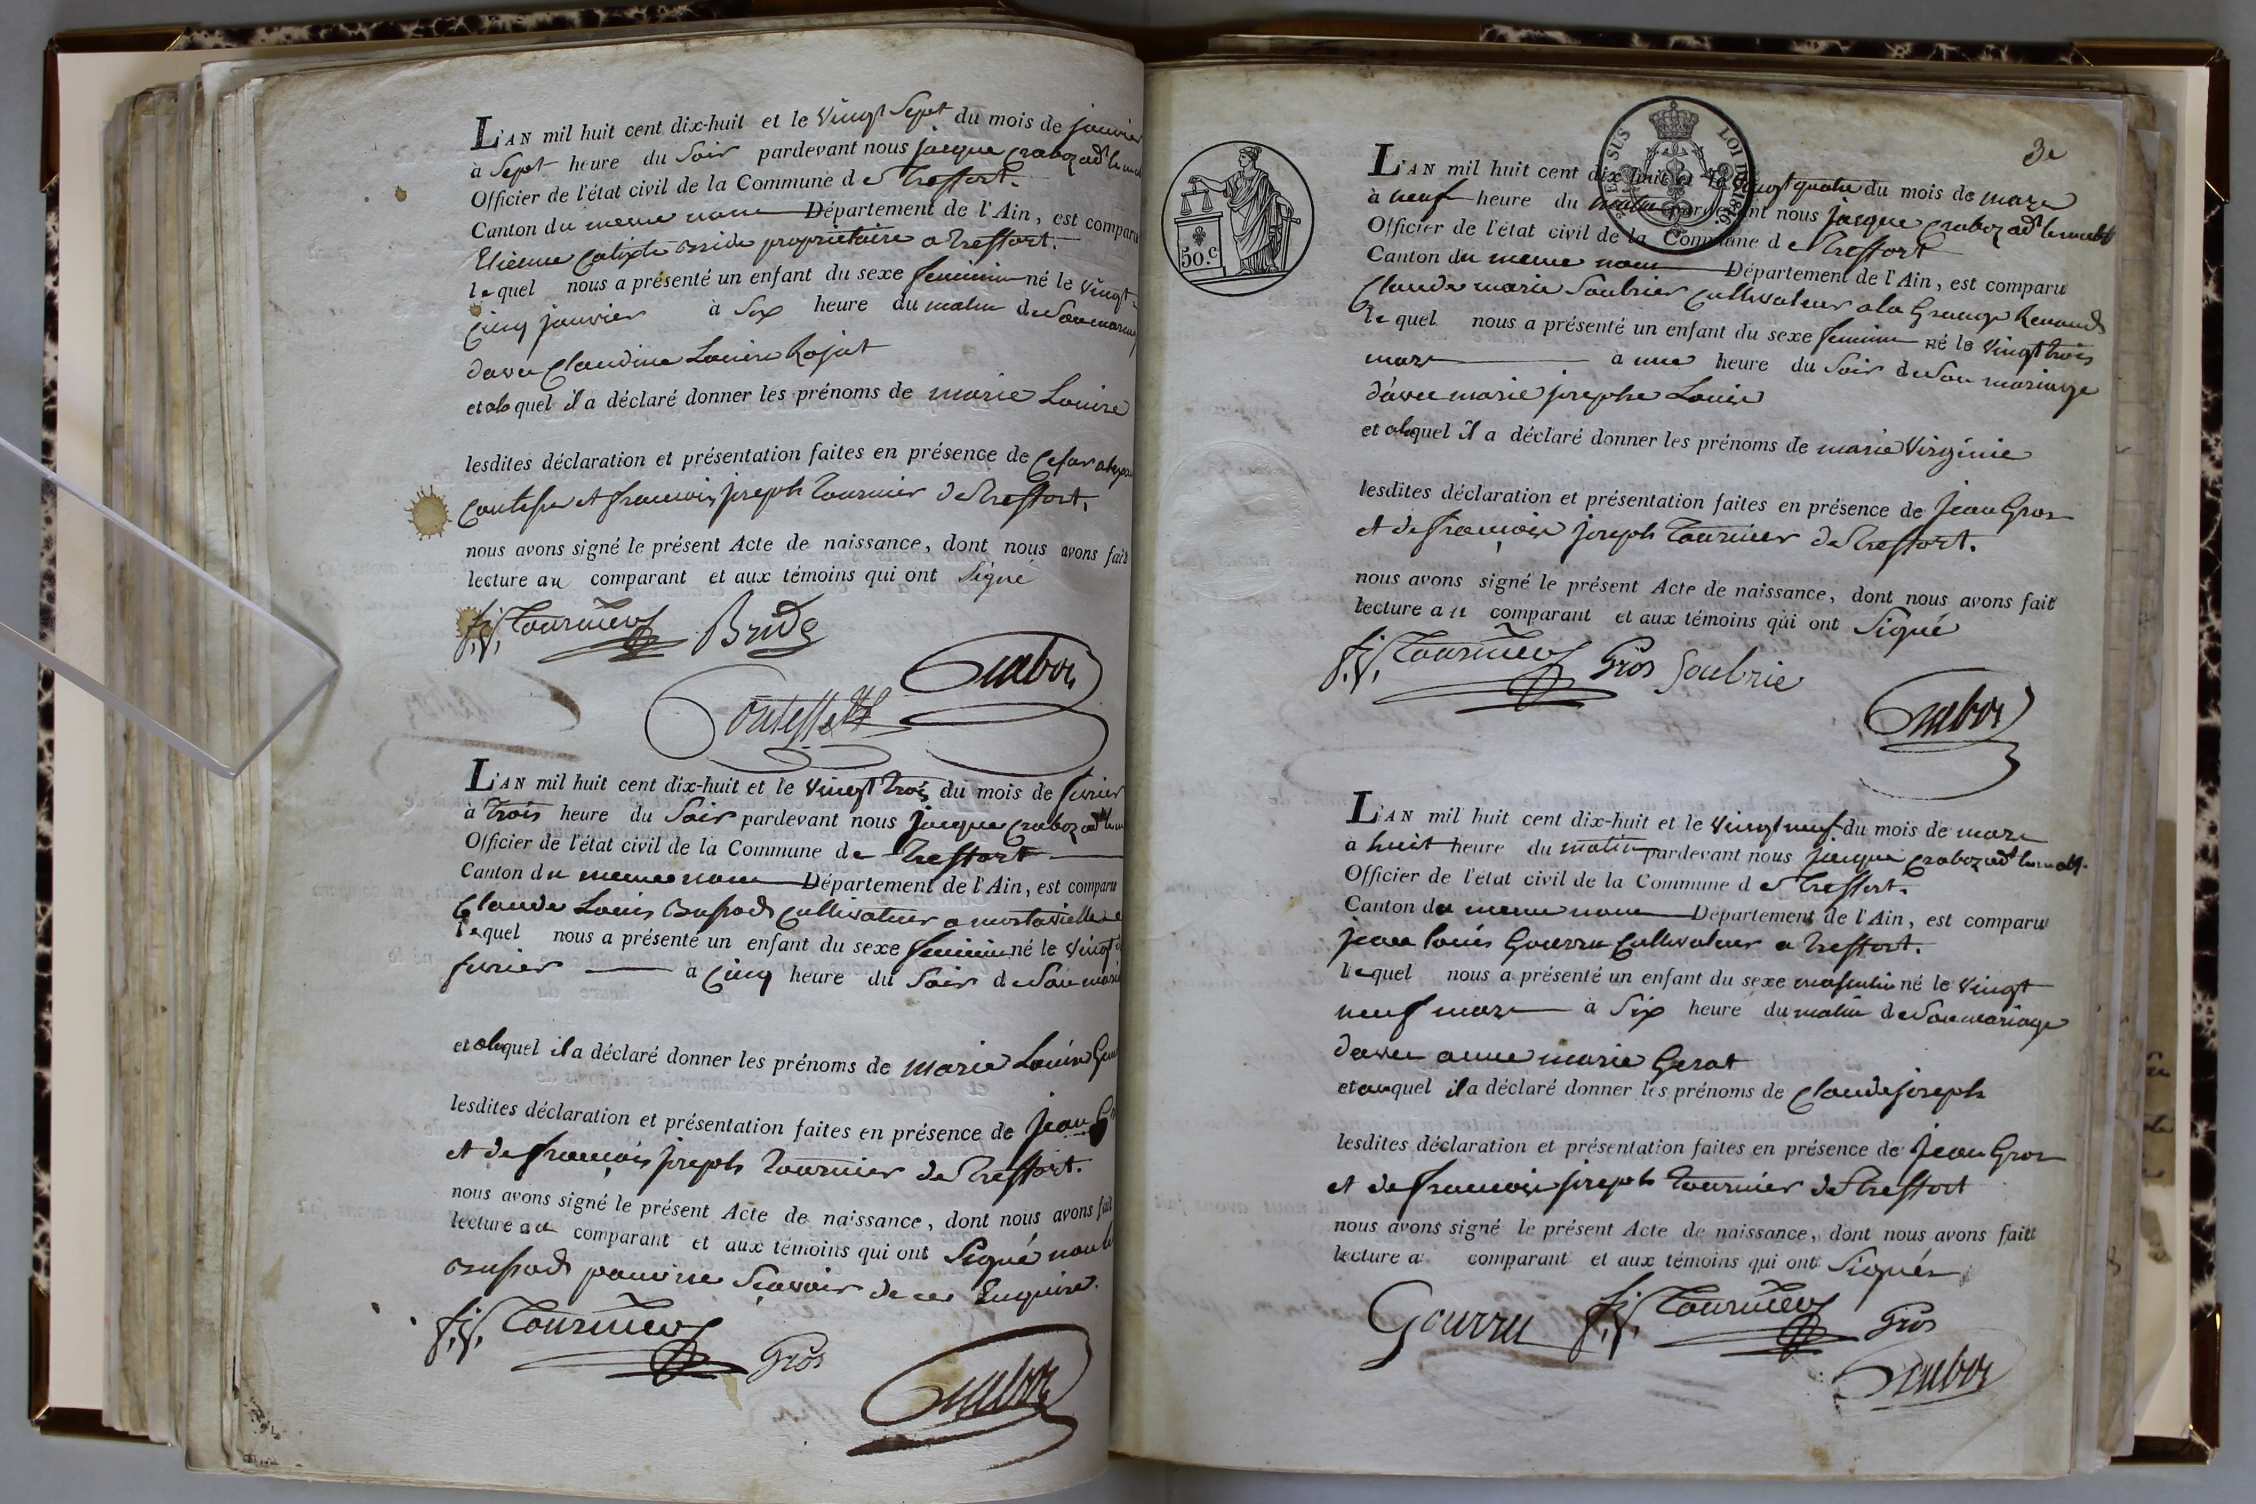 L'AN mil huit cent dix-huit et le vingt Sept du mois de janvier
à Sept heure du Soir pardevant nous jacque
Officier de l'état civil de la Commune de treffort.
Canton du meme nom Département de l'Ain, est comparu
Etienne Calixte proprietaire a treffort.
lequel nous a présenté un enfant du sexe feminin né le vingt
cinq janvier à Six heure du matin de Son mariage
davec Claudine Louise Rojat
et alaquel il a déclaré donner les prénoms de marie Louise
lesdites déclaration et présentation faites en présence de Cesar
et francois joseph tournier de treffort.
nous avons signé le présent Acte de naissance, dont nous avons fait
lecture au comparant et aux témoins qui ont Signé
f. j. Tournier
L'AN mil huit cent dix-huit et le vingt trois du mois de fevrier
à trois heure du Soir pardevant nous jacque
Officier de l'état civil de la Commune de treffort
Canton du meme nom Département de l'Ain, est comparu
Claude Louis Cultivateur a
lequel nous a présenté un enfant du sexe feminin né le vingt
fevrier à cinq heure du Soir de Son
et alaquel il a déclaré donner les prénoms de marie Louise
lesdites déclaration et présentation faites en présence de jean
et de françois joseph tournier de treffort.
nous avons signé le présent Acte de naissance, dont nous avons fait
lecture au comparant et aux témoins qui ont Signé non le
pour ne Scavoir de ce Enquire.
f. j. Tournier Gros
3e
SUS LOI DE 1816
50. c
L'AN mil huit cent dix-huit et le vingt quatre du mois de mars
à neuf heure du matin pardevant nous jacque
Officier de l'état civil de la Commune de treffort
Canton du meme nom Département de l'Ain, est comparu
Claude marie Soubrier Cultivateur a la Grange
lequel nous a présenté un enfant du sexe feminin né le vingt trois
mars à une heure du Soir de Son mariage
d'avec marie josephe Louise
et alaquel il a déclaré donner les prénoms de marie Virginie
lesdites déclaration et présentation faites en présence de jean Gros
et de françois joseph tournier de treffort.
nous avons signé le présent Acte de naissance, dont nous avons fait
lecture au comparant et aux témoins qui ont Signé
f. j. Tournier Gros Soubrie
L'AN mil huit cent dix-huit et le vingt neuf du mois de mars
à huit heure du matin pardevant nous jacque
Officier de l'état civil de la Commune de treffort.
Canton du meme nom Département de l'Ain, est comparu
jean louis Gourru Cultivateur a treffort.
lequel nous a présenté un enfant du sexe masculin né le vingt
neuf mars à Six heure du matin de Son mariage
davec anne marie Gerat
et auquel il a déclaré donner les prénoms de Claude joseph
lesdites déclaration et présentation faites en présence de jean Gros
et de françois joseph tournier de treffort
nous avons signé le présent Acte de naissance, dont nous avons fait
lecture a comparant et aux témoins qui ont Signés
Gourru f. j. Tournier Gros